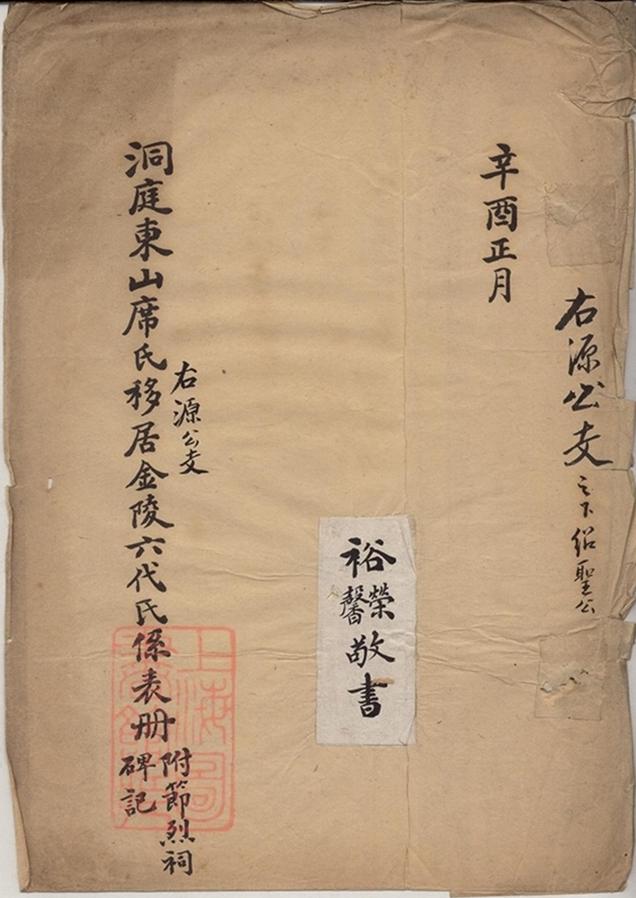 右源公支之下紹聖公
辛酉正月
裕榮馨敬書
右源公支
洞庭東山席氏移居金陵六代氏係表册
附節烈祠
碑記
上海圖